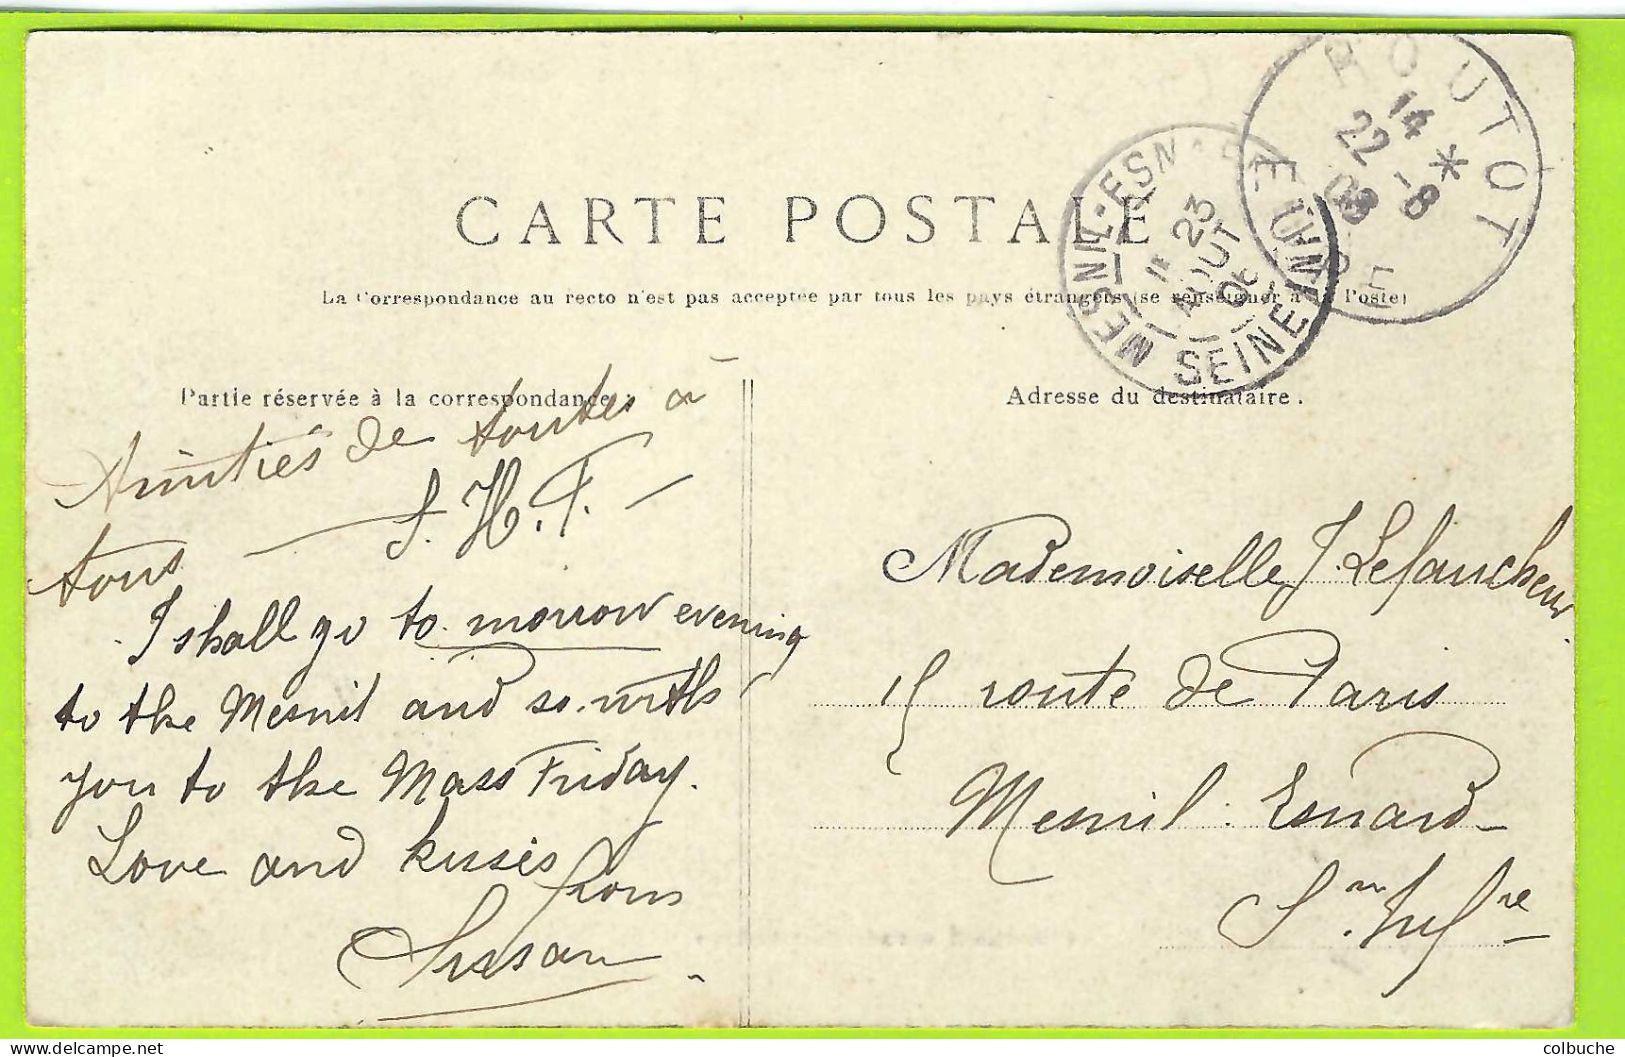 CARTE POSTALE
La Correspondance au recto n'est pas acceptée par tous les pays étrangers (se renseigner à la Poste)
ROUTOT
14 *
22 -8
08
EURE
MESNIL-ESNARD
23
AOUT
SEINE INF
Partie réservée à la correspondance.
Adresse du destinataire.
Amitiés de toutes à
tous — S. H. T. —
I shall go to morrow evening
to the Mesnil and so with
you to the Mass Friday.
Love and kisses
from
Sussan
Mademoiselle J. Lefaucheur.
15 route de Paris
Mesnil-Esnard
Sne Infre
colbuche